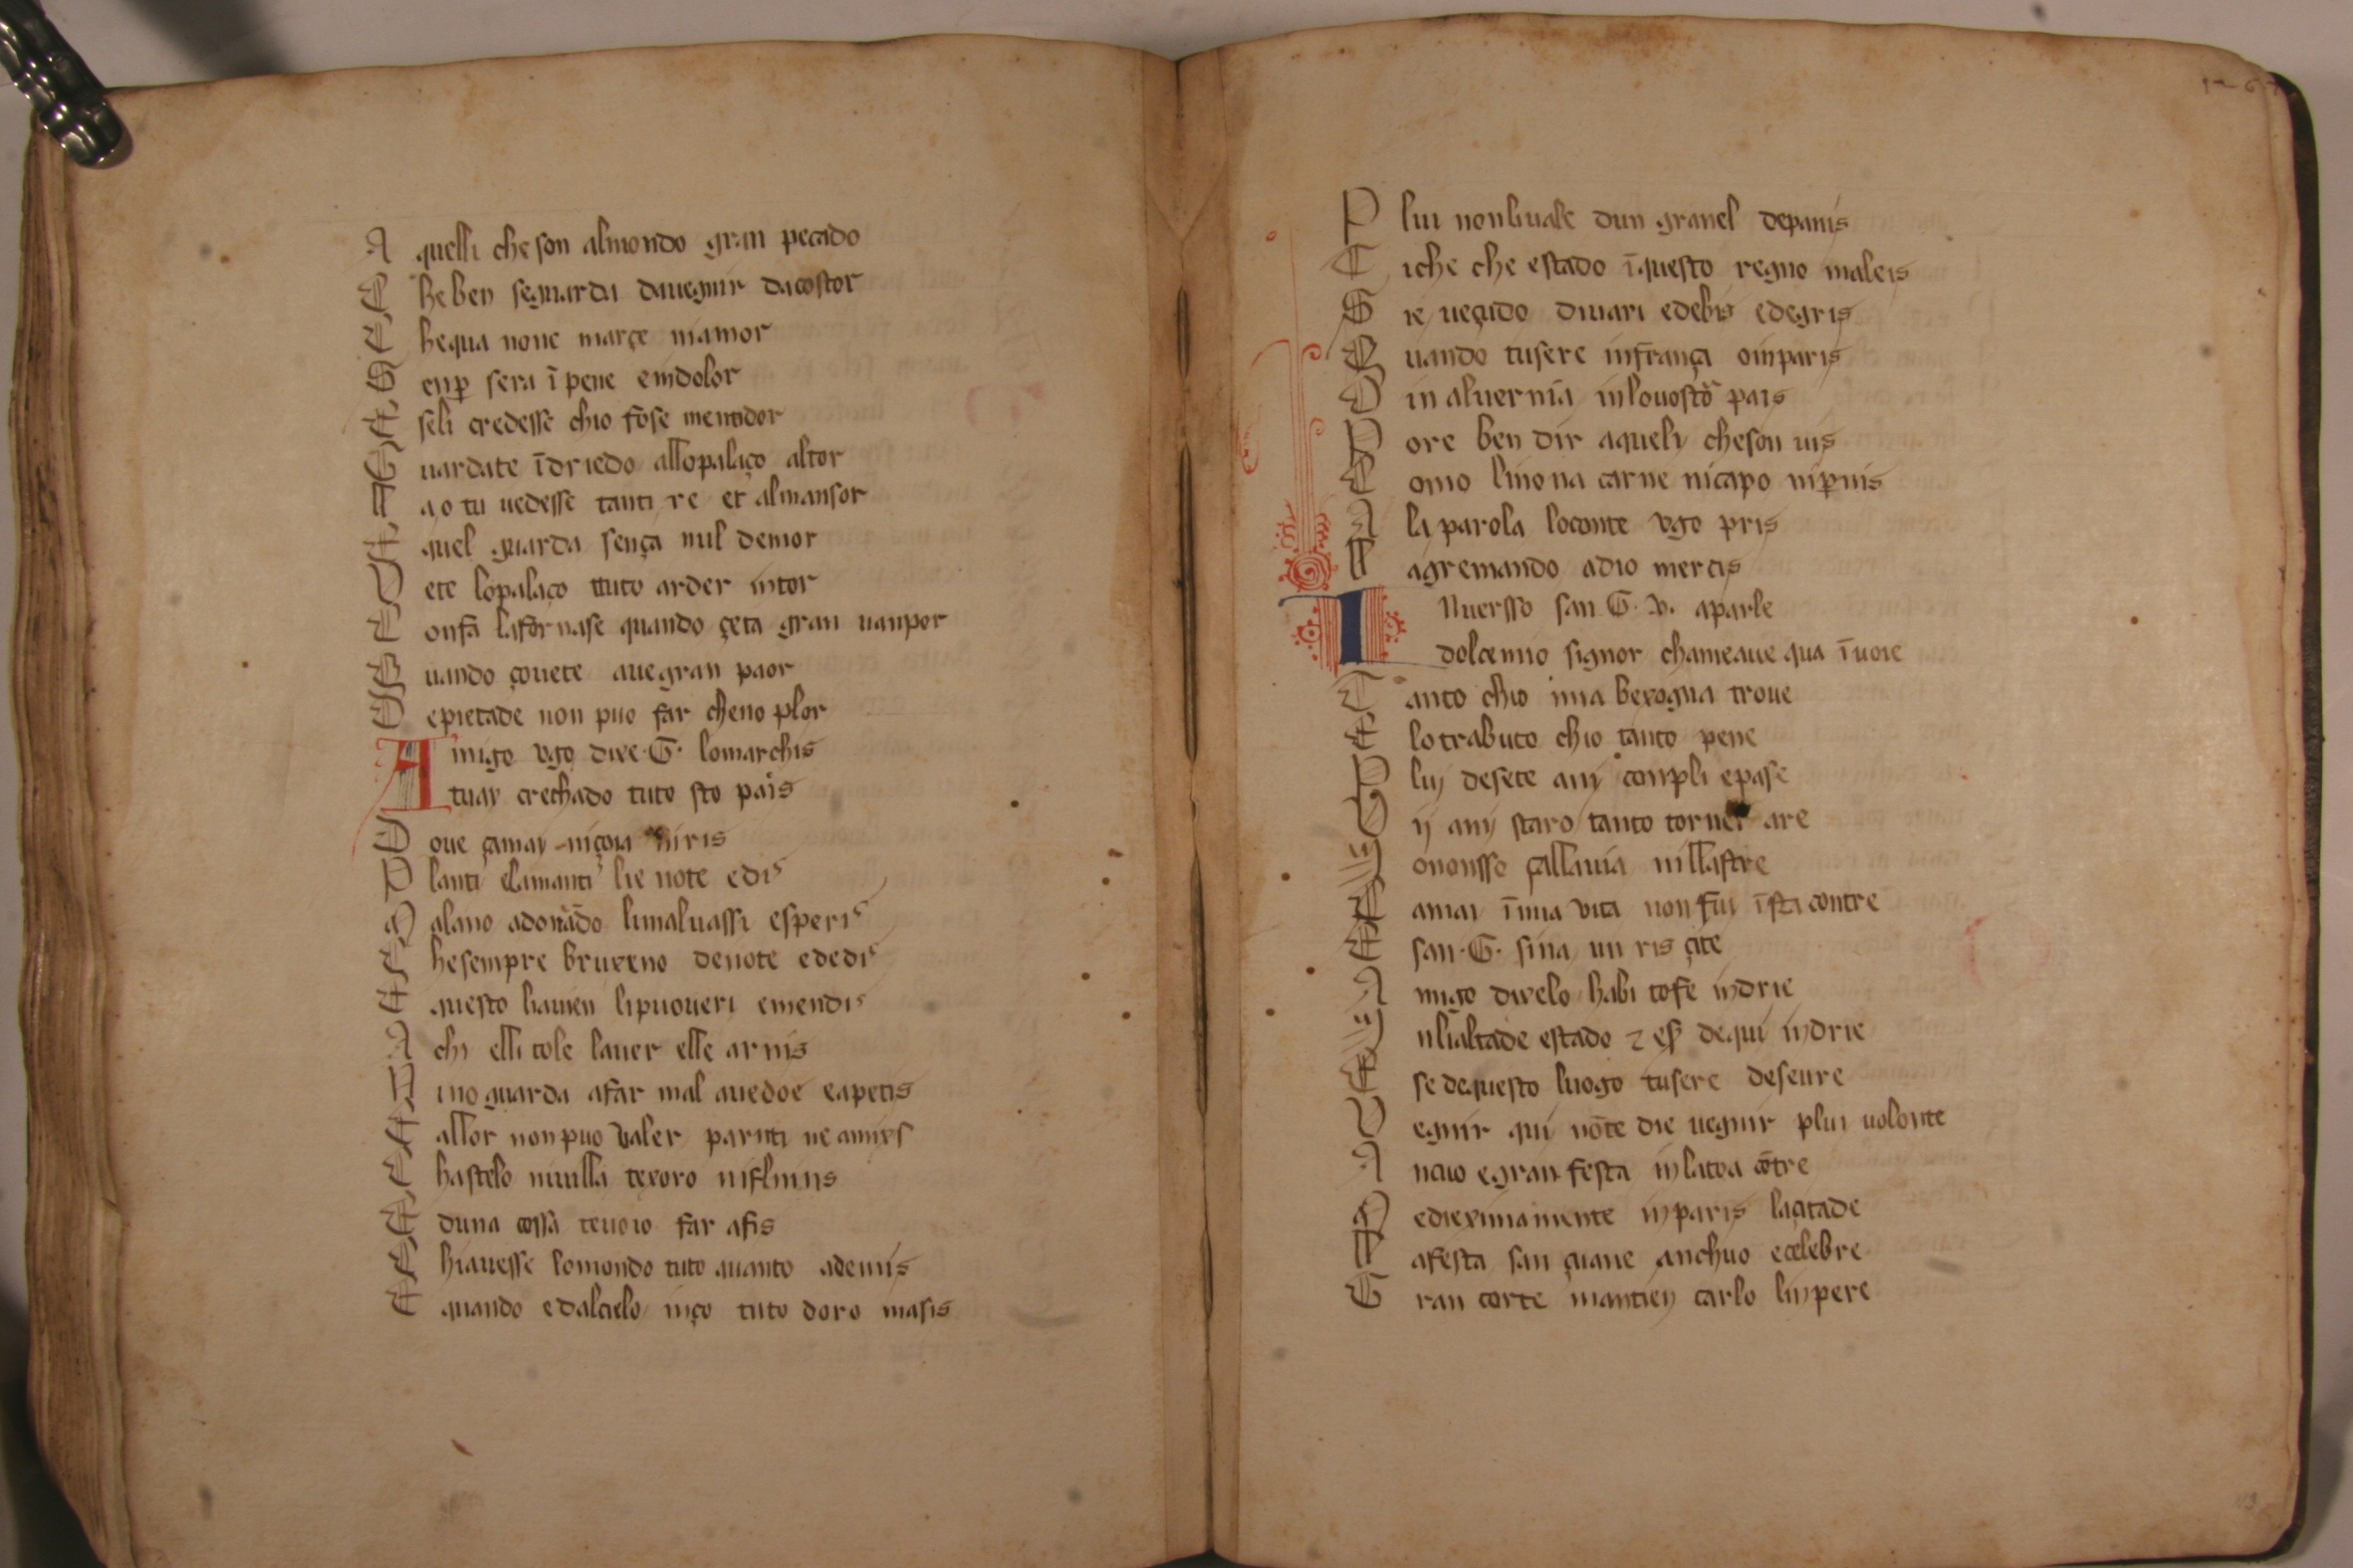 A quelli che son almondo gran pecado
C he ben seguarda dauegnir dacostor
C hequa none març̧e niamor
S enp̱ sera ī pene eindolor
E seli credesse chio fose mentidor
G uardate īdriedo allopalaço altor
L a o tu uedesse tanti re et almansor
E quel guarda sença nul demor
V ete lopalaço tuto arder intor
C onfa lafornase quando çeta gran uanpor
Q uando çouete aue gran paor
D epietade non puo far cheno plor
A migo vgo dixe .G. lomarchis
tuay crechado tuto sto pais
D oue çamay niçoia niris
P lanti elimanti lie note edis
M alano adorādo limaluassi esperis
C hesempre bruxeno denote ededis
E questo hauien lipuoueri emendis
A chi elli tole lauer elle arnis
N ino guarda afar mal auedoe eapetis
E allor non puo valer parinti ne amixs
C hastelo niuilla texoro nifluuis
E duna cossa teuoio far afis
C hiauesse lomondo tuto quanto ademis
E quando edalcielo inço tuto doro masis
P lui nonliuale dun granel depanis
T iche che estado ī questo regno maleis
S ie ueçudo diuari edebis edegris
Q uando tusere infrança oinparis
O in aluernia inlouostro pais
P ore ben dir aquely cheson uis
C omo lino na carne nicapo nip̱nis
A la parola loconte vgo pris
L agremando adio mercis
I Nuersso san .G. v. aparle
dolce mio signor chameaue qua ī uoie
T anto chio inia bexogna troue
E lo trabuto chio tanto pene
P luy desete any conpli epase
V ij any staro tanto torner are
N ononsse çallauia nillastre
C amay ī mia vita non fuy ī sta contre
E san .G. sina un ris gite
A migo dixelo habi tofe indrie
I nlialtade estado ⁊ esp̱ dequi indrie
E se dequesto luogo tusere deseure
V egnir qui note die uegnir plui uolonte
A ncuo egran festa inlatoa cōtre
M ediexima mente inparis lacitade
L afesta san çuane anchuo ecelebre
G ran corte mantien carlo linpere